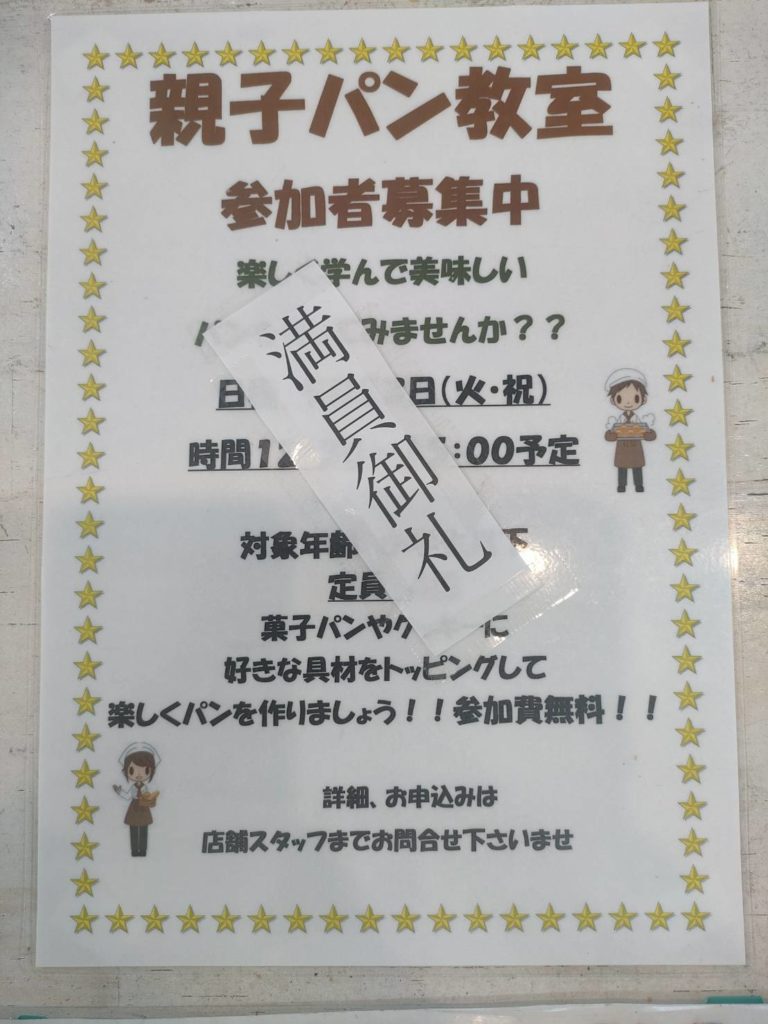 親子パン教室
参加者募集中
楽し 学んで美味しい
みませんか？？
日 日(火・祝)
時間12 :00予定
対象年齢
定員
菓子パンやク に
好きな具材をトッピングして
楽しくパンを作りましょう！！参加費無料！！
詳細、お申込みは
店舗スタッフまでお問合せ下さいませ
満員御礼